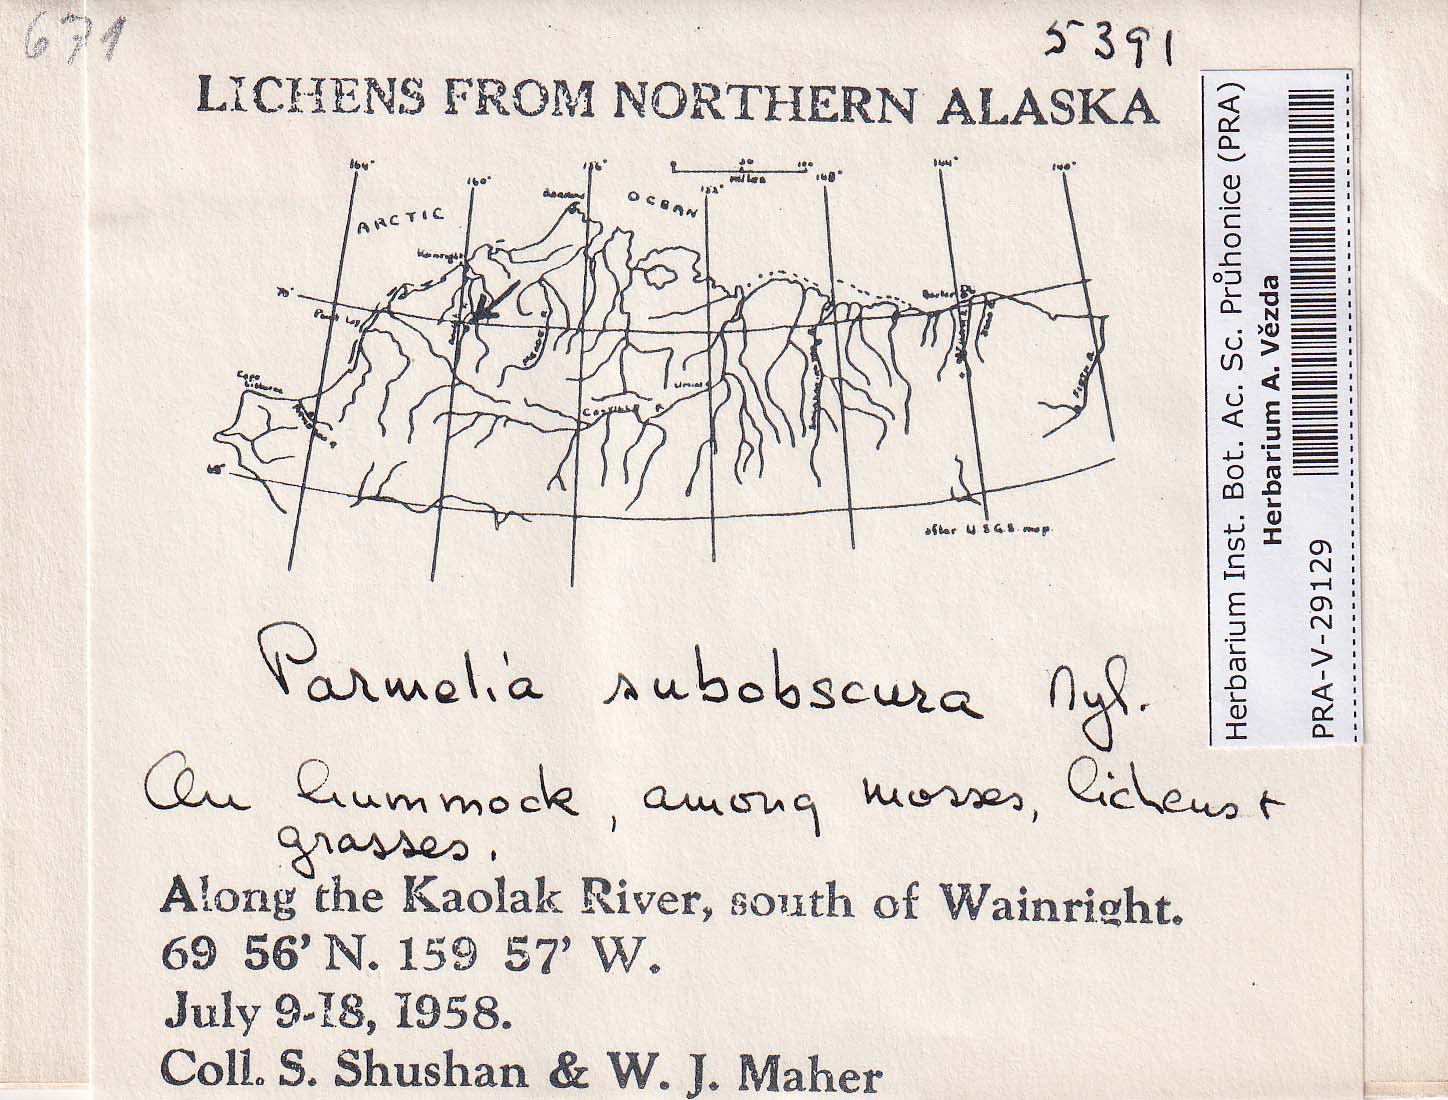 671
5391
LICHENS FROM NORTHERN ALASKA
164°
160°
156°
0 50 100
miles
152°
148°
144°
140°
ARCTIC
OCEAN
Barrow
70°
Point Lay
Cape
Lisburne
Barter
Umiat
Colville R.
68°
after U.S.G.S. map.
Parmelia subobscura Nyl.
On hummock, among mosses, lichens +
grasses.
Along the Kaolak River, south of Wainright.
69 56' N. 159 57' W.
July 9-18, 1958.
Coll. S. Shushan & W. J. Maher
Herbarium Inst. Bot. Ac. Sc. Průhonice (PRA)
Herbarium A. Vězda
PRA-V-29129